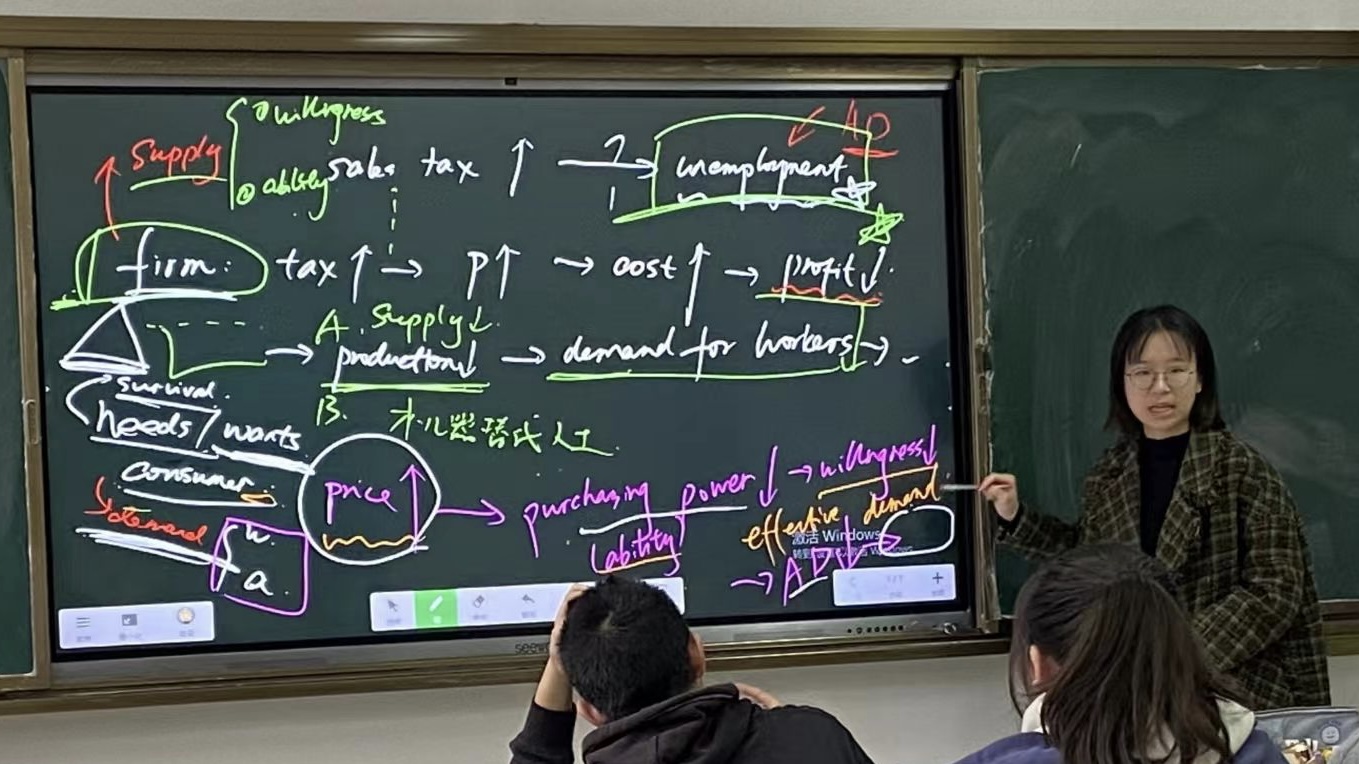 ① willingness
Supply
② ability
sales tax ↑ → ? unemployment AD
1
firm: tax ↑ → P↑ → cost ↑ → profit↓.
A. Supply↓.
→ production↓ → demand for workers↓ →
B. 机器替代人工
survival.
needs / wants
consumer
demand
w.
a.
price ↑ → purchasing power ↓ → willingness↓
(ability)
effective demand
→ AD↓
激活 Windows
1/1
seewo